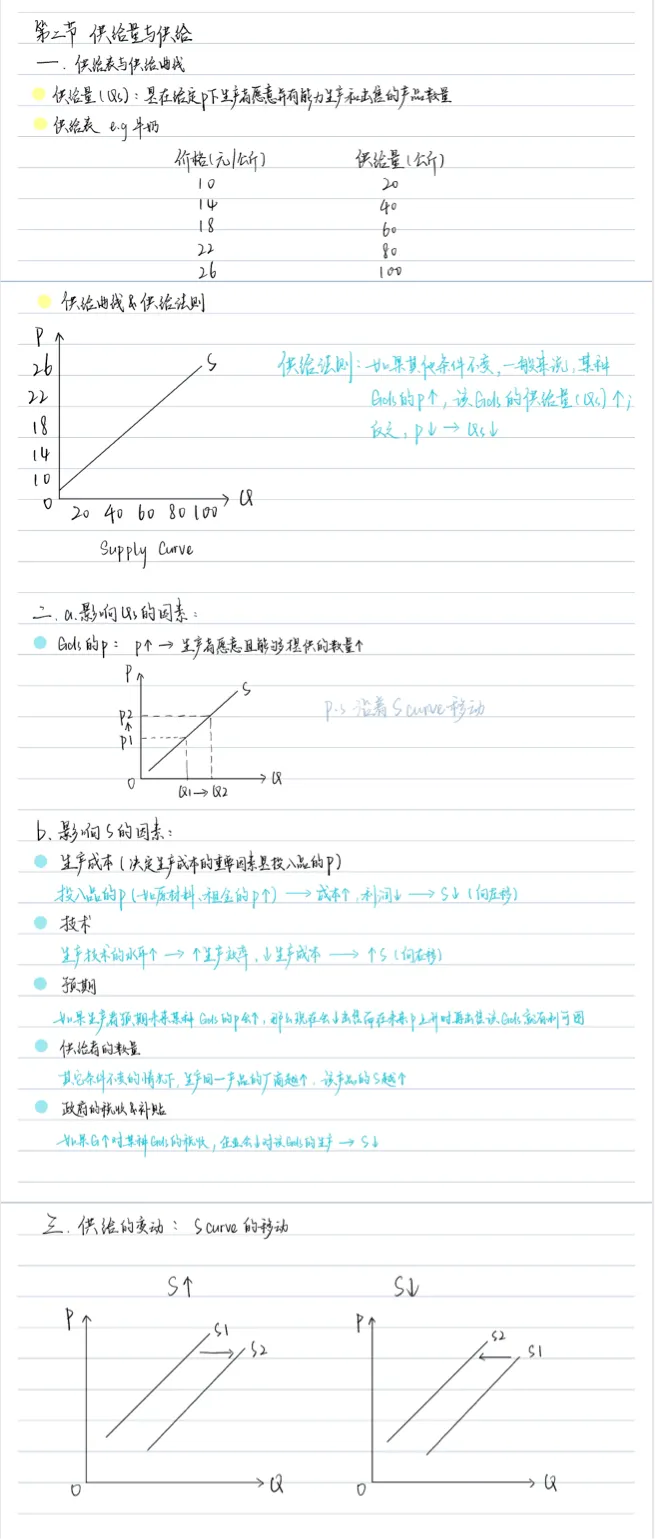 第二节 供给量与供给
一. 供给表与供给曲线
供给量(Qs): 是在给定p下生产者愿意并有能力生产和出售的产品数量
供给表 e.g 牛奶
价格(元/公斤) 供给量(公斤)
10 20
14 40
18 60
22 80
26 100
供给曲线&供给法则
P
26
22
18
14
10
0
S
20 40 60 80 100
Q
Supply Curve
供给法则: 如果其他条件不变, 一般来说, 某种
Gds的p↑, 该Gds的供给量(Qs)↑;
反之, p↓ → Qs↓
二. a.影响Qs的因素:
Gds的p: p↑ → 生产者愿意且能够提供的数量↑
P
S
p2
↑
p1
0
Q1→Q2
Q
p.s 沿着S curve移动
b.影响S的因素:
生产成本(决定生产成本的重要因素是投入品的p)
投入品的p(如原材料、租金的p↑) → 成本↑, 利润↓ → S↓ (向左移)
技术
生产技术的水平↑ → ↑生产效率, ↓生产成本 → ↑S (向右移)
预期
如果生产者预期未来某种Gds的p会↑, 那么现在会↓出售而在未来p上升时再出售该Gds就有利可图
供给者的数量
其它条件不变的情况下, 生产同一产品的厂商越↑, 该产品的S越↑
政府的税收&补贴
如果G↑对某种Gds的税收, 企业会↓对该Gds的生产 → S↓
三. 供给的变动: S curve的移动
S↑
P
S1
→
S2
0
Q
S↓
P
S2
←
S1
0
Q